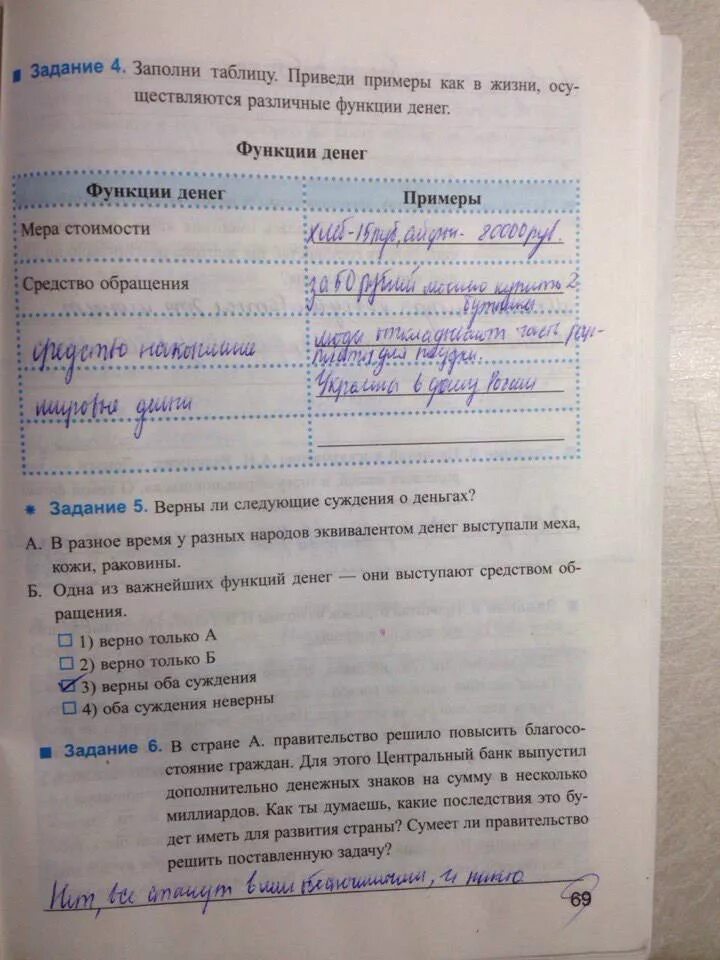 Задание 4. Заполни таблицу. Приведи примеры как в жизни, осу-
ществляются различные функции денег.
Функции денег
Функции денег Примеры
Мера стоимости хлеб-15руб, айфон- 80000руб.
Средство обращения за 50 рублей можно купить 2
бутылки
средство накопления люди откладывают часть
для
мировые деньги Украины в России
* Задание 5. Верны ли следующие суждения о деньгах?
А. В разное время у разных народов эквивалентом денег выступали меха,
кожи, раковины.
Б. Одна из важнейших функций денег — они выступают средством об-
ращения.
1) верно только А
2) верно только Б
3) верны оба суждения
4) оба суждения неверны
Задание 6. В стране А. правительство решило повысить благосо-
стояние граждан. Для этого Центральный банк выпустил
дополнительно денежных знаков на сумму в несколько
миллиардов. Как ты думаешь, какие последствия это бу-
дет иметь для развития страны? Сумеет ли правительство
решить поставленную задачу?
Нет, все станут и никто
69